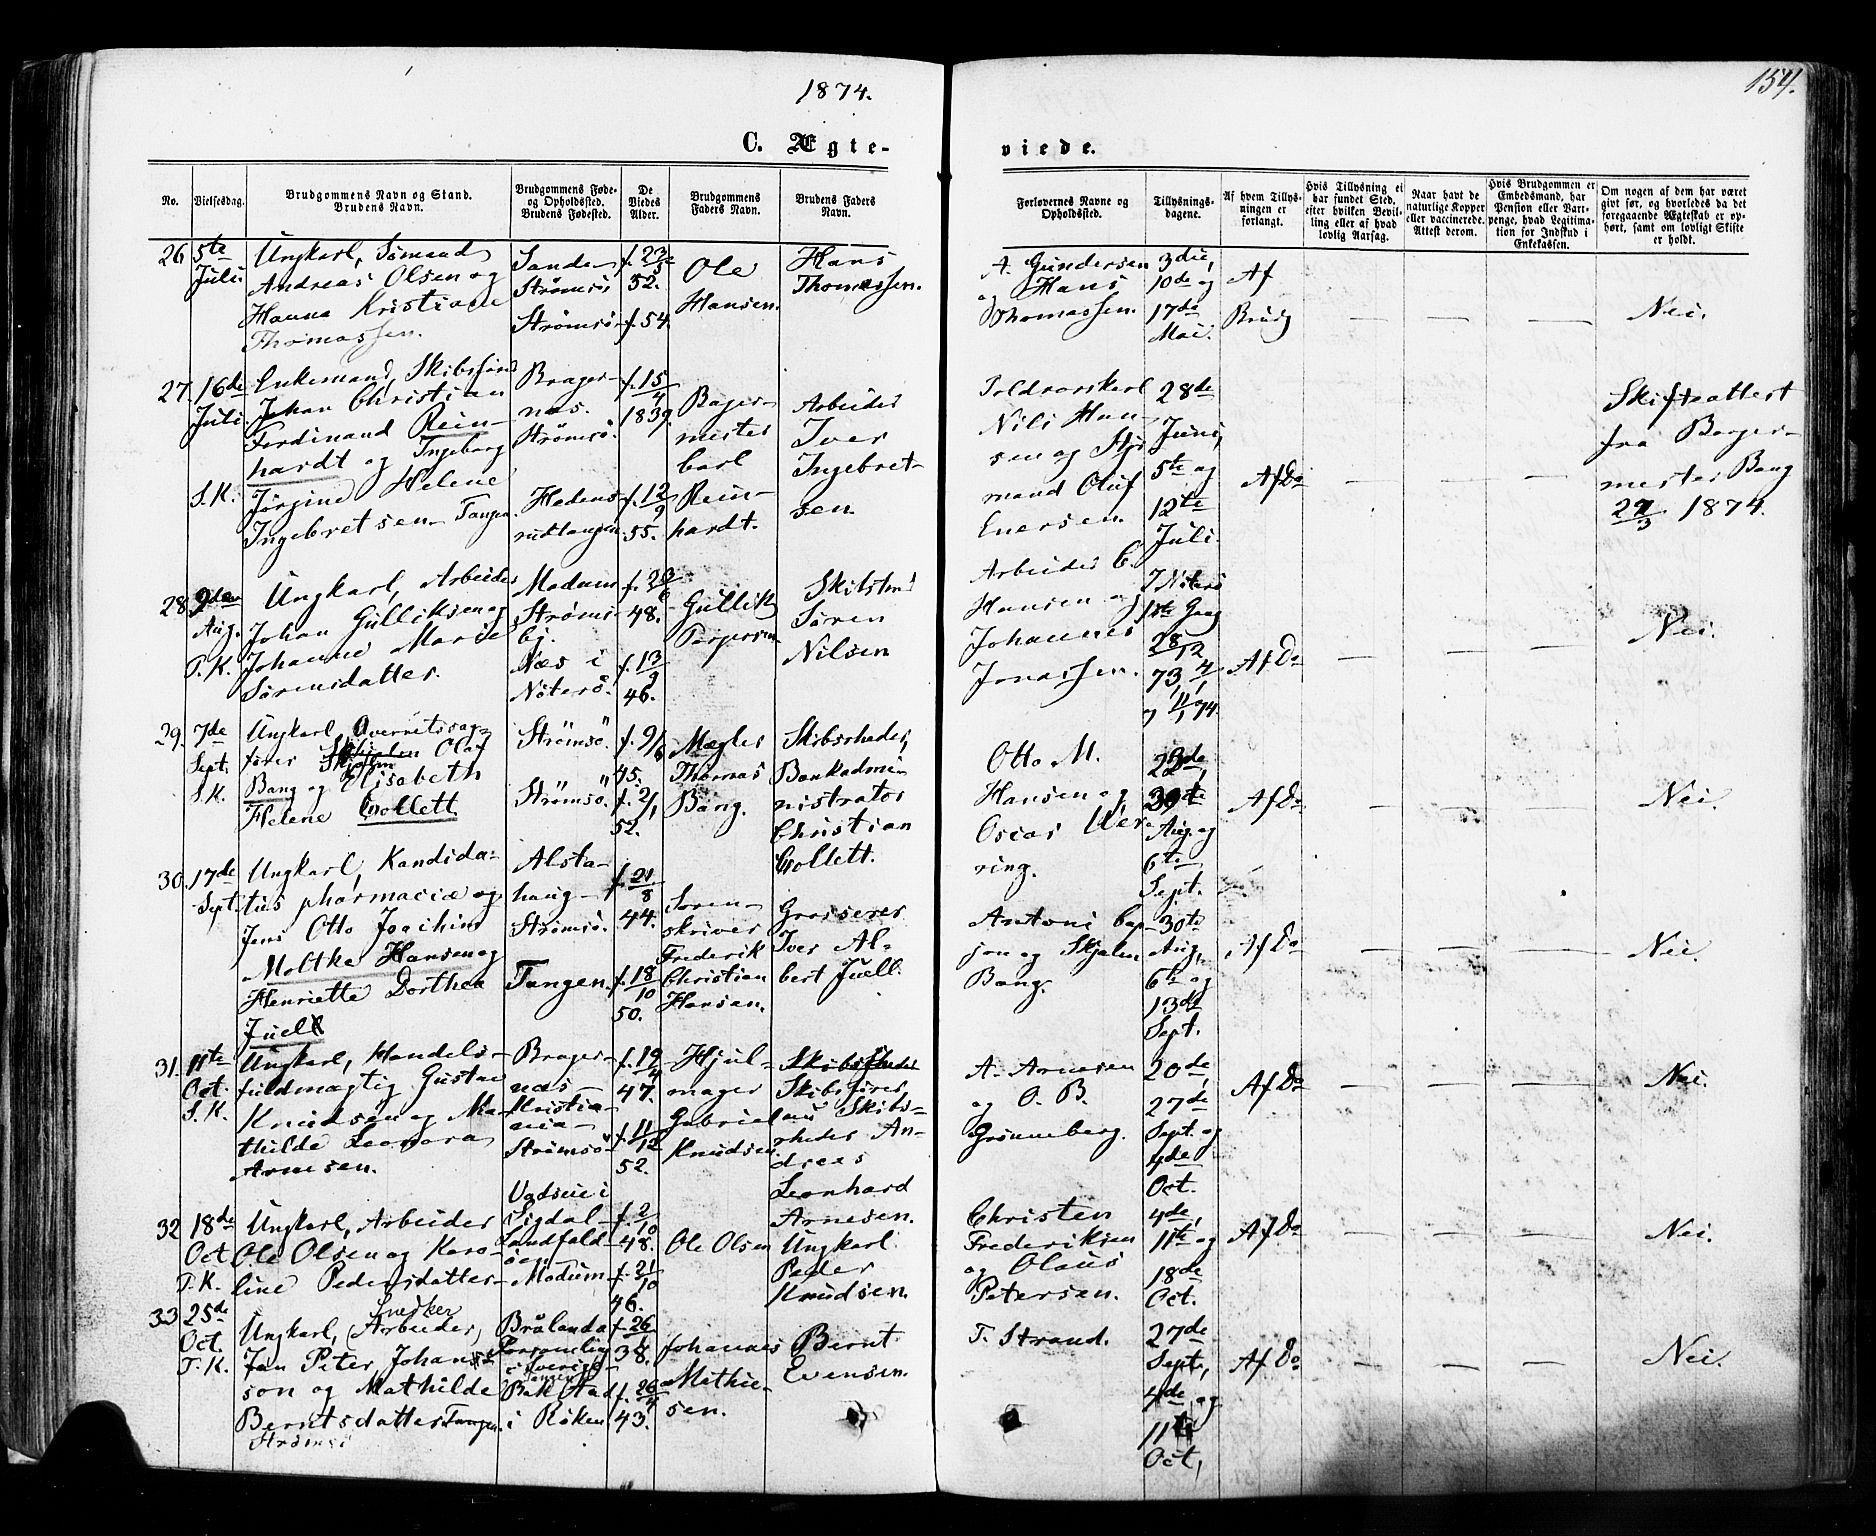 1874.
154.
C. Ægte-
viede.
No.
Vielsesdag.
Brudgommens Navn og Stand.
Brudens Navn.
Brudgommens Føde-
og Opholdssted.
Brudens Fødested.
De
Viedes
Alder.
Brudgommens
Faders Navn.
Brudens Faders
Navn.
Forlovernes Navne og
Opholdssted.
Tillysnings-
dagene.
Af hvem Tillys-
ningen er
forlangt.
Hvis Tillysning ei
har fundet Sted,
efter hvilken Bevil-
ling eller af hvad
lovlig Aarsag.
Naar havt de
naturlige Kopper
eller vaccinerede.
Attest derom.
Hvis Brudgommen er
Embedsmand, har
Pension eller Vart-
penge, hvad Legitima-
tion for Indskud i
Enkekassen.
Om nogen af dem har været
givt før, og hvorledes da det
foregaaende Ægteskab er op-
hørt, samt om lovligt Skifte
er holdt.
26
5te
Juli.
Ungkarl, Sømand
Andreas Olsen og
Hanna Kristiane
Thomassen.
Sande-
Strømsö
Strömsö-
f. 23/5
52.
f. 54.
Ole
Hansen.
Hans
Thomassen.
A. Gundersen
og Hans
Thomassen.
3die,
10de og
17de
Mai.
Af
Brudg
— — —
Nei.
27.
16de
Juli.
S. K.
Enkemand, Skibsfører
Johan Christian
Ferdinand Rein-
hardt og Ingeborg
Jørgine Helene
Ingebretsen- Tangen
Brager-
næs.
Strømsö.
Hedens-
rudtangen
f. 15/4
1839.
f. 12/9
55.
Bager-
mester
Carl
Rein-
hardt.
Arbeider
Iver
Ingebret-
sen.
Toldvarskarl
Nils Han-
sen og
mand Oluf
Enersen.
28de
Juni,
5te og
12te
Juli.
Af Do
— — —
Skifteattest
fra Borger-
mester Bang
1874.
28
9de
Aug.
T. K.
Ungkarl, Arbeider
Johan Gulliksen og
Johanne Marie
Sörensdatter.
Modum
Strømsö
Næs i
Nöterö.
f. 23/6
48.
f. 13/9
46.
Gullik
Torgersen
Sören
Nilsen
Arbeider C.
Hansen og
Johannes
Jonassen.
I Nöterö
1ste Gang
28/12
73 4/1
11/1 74.
Af Do
— — —
Nei.
29.
7de
Sept.
S. K.
Ungkarl, Overretssag-
fører Skjelm Olaf
Bang og Elisabeth
Helene Collett
Strømsö.
Strömsö.
f. 9/6
45.
f. 2/1
52.
Mægler
Thomas
Bang.
Skibsrheder,
Bankadmi-
nistrator
Christian
Collett.
Otto M.
Hansen og
Oscar Wer-
ring.
23de,
30te
Aug. og
6te
Sept.
Af Do
— — —
Nei.
30.
17de
Sept.
Ungkarl, Kandida-
tus pharmaciæ og
Jens Otto Joachim
Moltke Hansen og
Henriette Dorthea
Juell
Alsta-
haug-
Strømsö.
Tangen.
f. 21/8
44.
f. 18/10
50.
Soren-
skriver
Frederik
Christian
Hansen.
Grosserer
Iver Al-
bert Juell.
Antoni Cap-
og Skjelm
Bang.
30te
Aug.,
6te og
13de
Sept.
Af Do
— — —
Nei.
31.
11te
Oct.
S. K.
Ungkarl, Handels-
fuldmægtig Gustav
Knudsen og Ma-
thilde Leonora
Arnesen.
Brager-
næs-
Kristia-
nia-
Strømsö
f. 19/4
47.
f. 11/12
52.
Hjul-
mager
Gabriel
Knudsen
Skibsrheder
Skibsfører
nu Skibs-
rheder An-
dreas
Leonhard
Arnesen.
A. Arnesen
og O. B.
Grønneberg.
20de,
27de
Sept. og
4de
Oct.
Af Do
— — —
Nei.
32
18de
Oct
T. K.
Ungkarl, Arbeider
Ole Olsen og Karo-
line Pedersdatter-
Sigdal-
Landfald-
öen.
Modum
f. 2/10
48.
f. 21/10
46.
Ole Olsen
Ungkarl
Peder
Knudsen.
Christen
Frederiksen
og Olaus
Petersen.
4de,
11te og
18de
Oct.
Af Do
— — —
Nei.
33
25de
Oct.
T. K.
Snedker
Ungkarl, (Arbeider)
Jan Peter Johans-
son og Mathilde
Berntsdatter Tangen.
Strømsö
Brålanda
Forsamling
i Sverige-
Tangen
i Röken
f. 26
38.
f. 26/4
43.
Johannes
Mathie-
sen.
Bernt
Evensen.
T. Strand.
27de
Sept.,
4de og
11te
Oct,
Af Do
— — —
Nei.